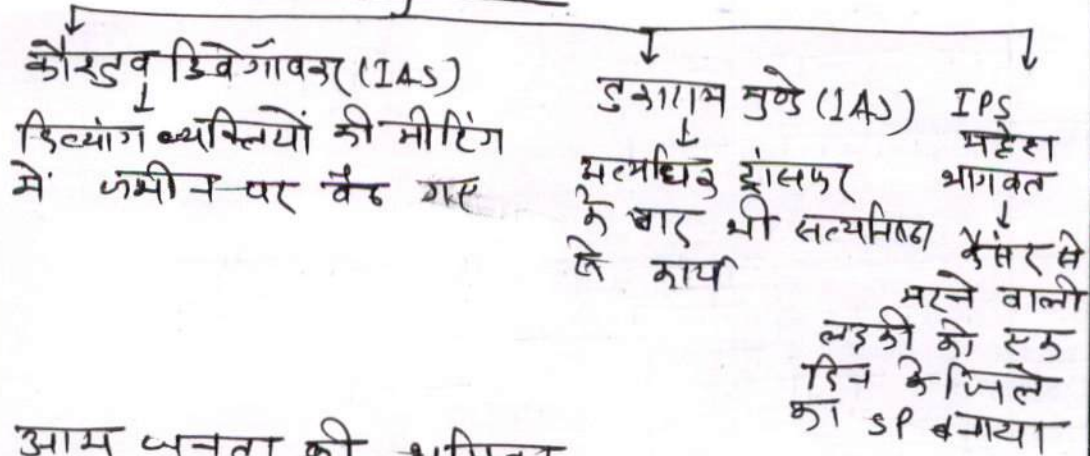 कौस्तुव दिवेगॉवकर (IAS)
↓
दिव्यांग व्यक्तियों की मीटिंग
में जमीन पर बैठ गए
तुकाराम मुण्डे (IAS)
↓
अत्यधिक ट्रांसफर
के बाद भी सत्यनिष्ठा
से कार्य
IPS
महेश
भागवत
↓
कैंसर से
मरने वाली
लड़की को एक
दिन के जिले
का SP बनाया
आम जनता की